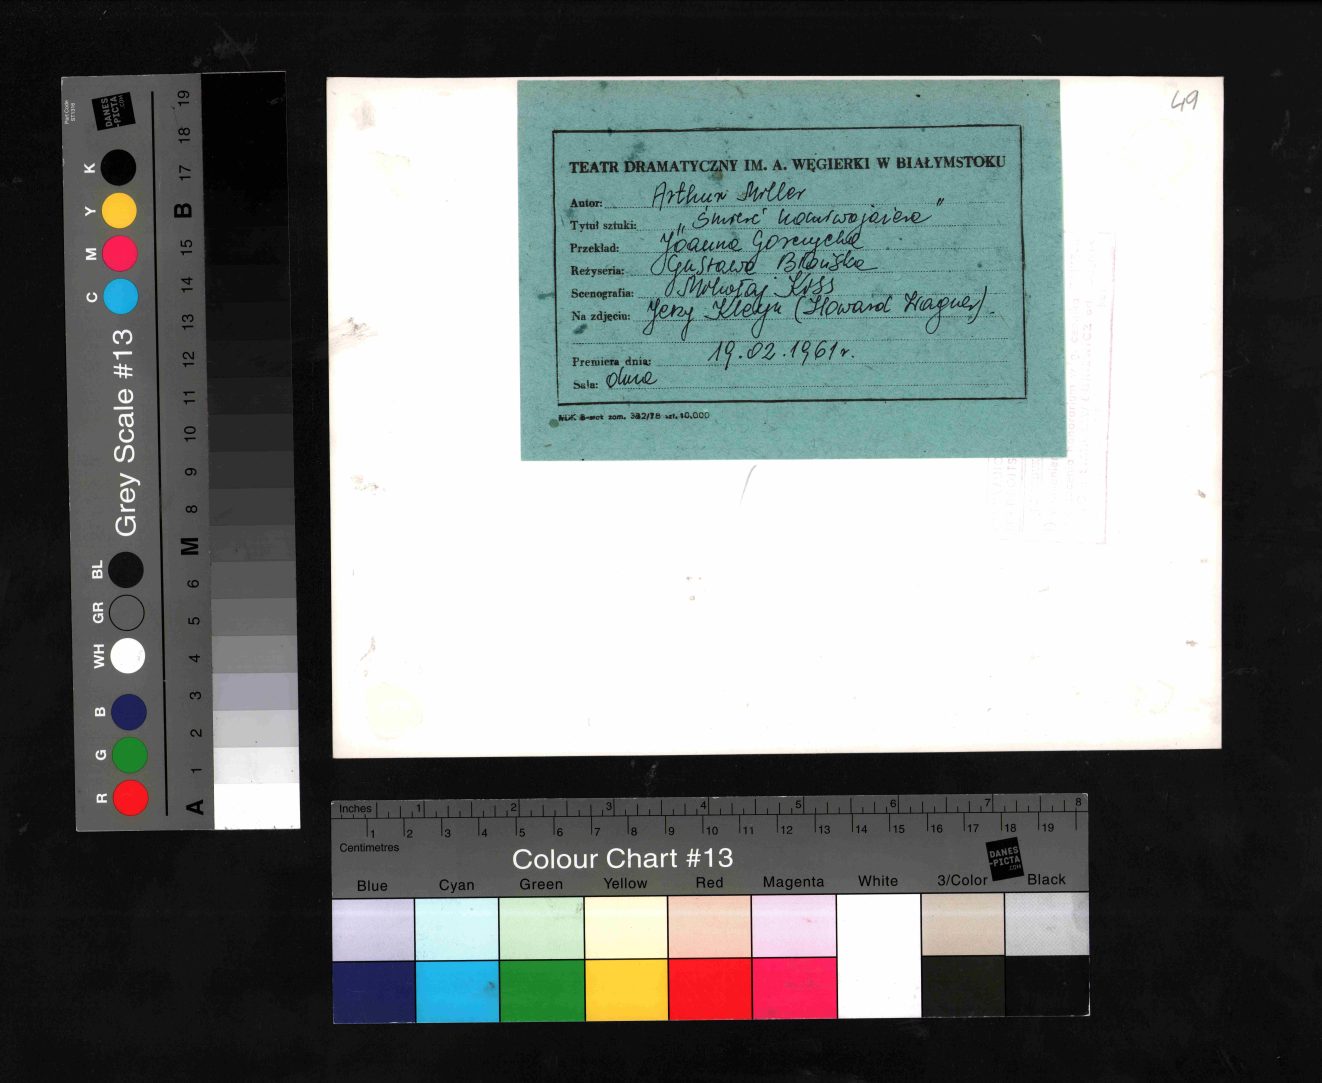 49
TEATR DRAMATYCZNY IM. A. WĘGIERKI W BIAŁYMSTOKU
Autor: Arthur Miller
Tytuł sztuki: „Śmierć komiwojażera”
Przekład: Joanna Gorczycka
Reżyseria: Gustawa Błońska
Scenografia: Mikołaj Kiss
Na zdjęciu: Jerzy Kleyn (Howard Wagner).
Premiera dnia: 19.02.1961r.
Sala: duża
zam. 322/78 szt. 10.000
Part Code
ST1316
DANES
-PICTA
.COM
Grey Scale #13
K Y M C BL GR WH B G R
19 18 17 B 15 14 13 12 11 10 9 8 M 6 5 4 3 2 1 A
Inches 1 2 3 4 5 6 7 8
1 2 3 4 5 6 7 8 9 10 11 12 13 14 15 16 17 18 19
Centimetres
Colour Chart #13
DANES
-PICTA
.COM
Blue Cyan Green Yellow Red Magenta White 3/Color Black